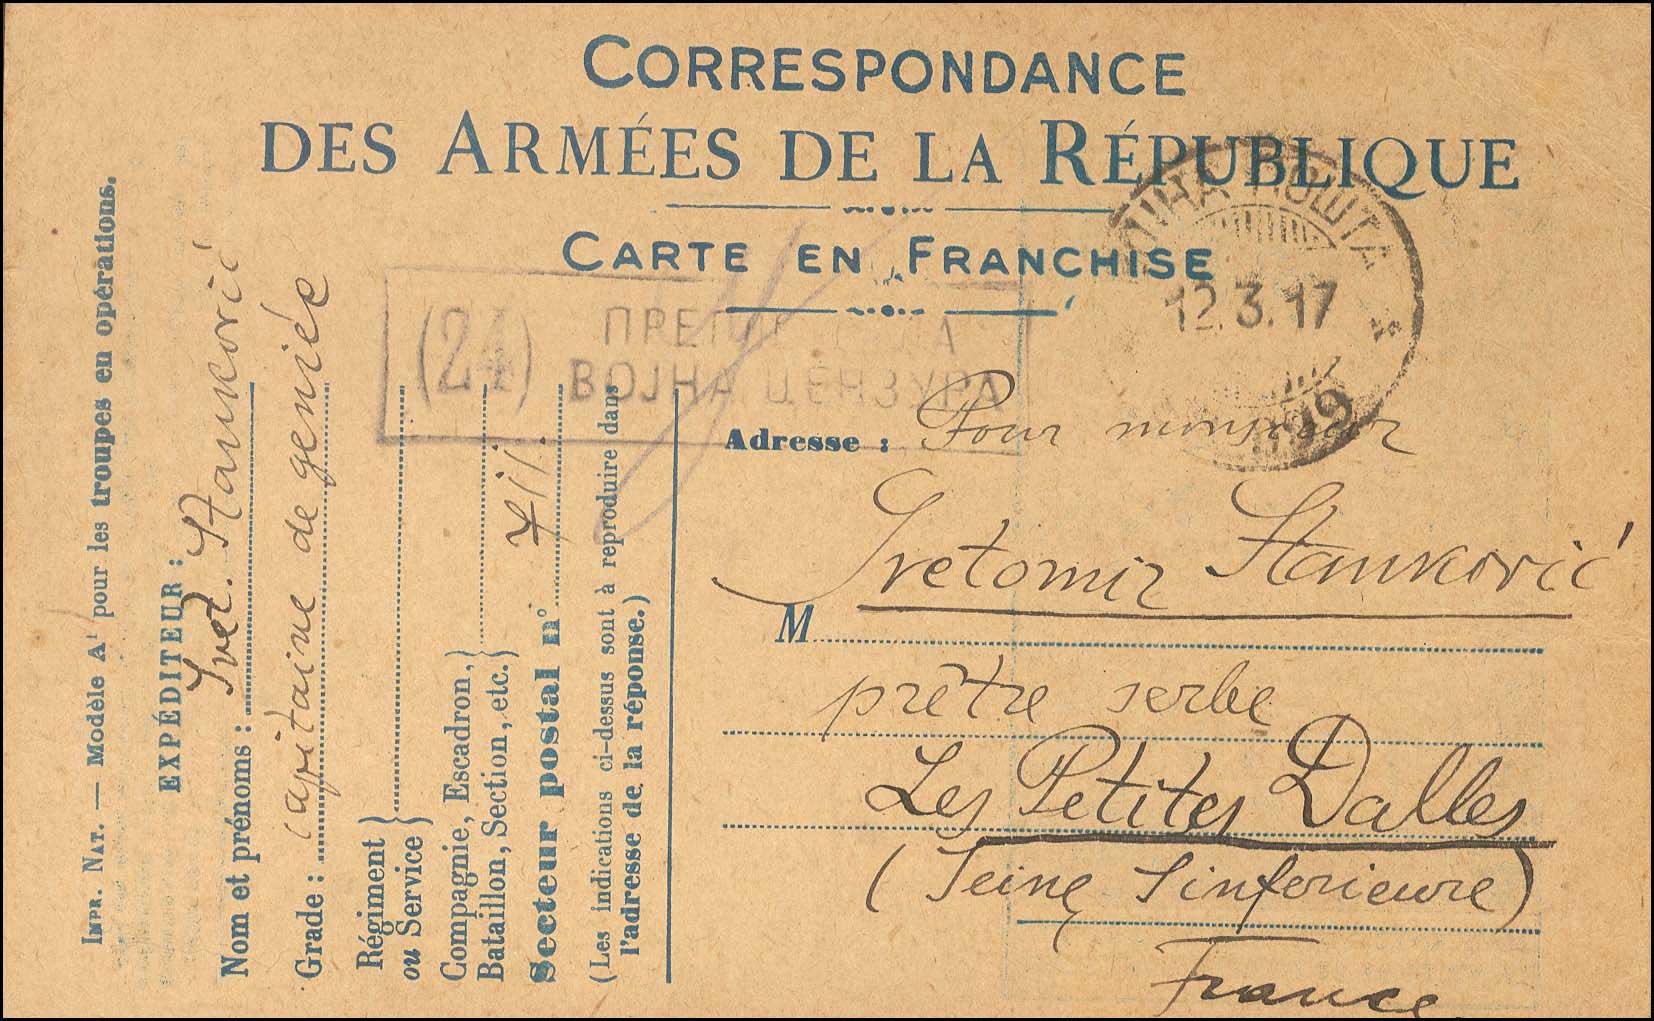 CORRESPONDANCE
DES ARMÉES DE LA RÉPUBLIQUE
CARTE EN FRANCHISE
ВОЈНА ПОШТА
12.3.17
(24)
ВОЈНА ЦЕНЗУРА
Adresse : Pour monsieur
M Svetomir Stanković
prêtre serbe
Les Petites Dalles
(Seine Sinferieure)
France
IMPR. NAT. — Modèle A¹ pour les troupes en opérations.
EXPÉDITEUR :
Nom et prénoms : Svet. Stanković
Grade : capitaine de geniée
Régiment
ou Service }
Compagnie, Escadron,
Bataillon, Section, etc. }
Secteur postal n°
(Les indications ci-dessus sont à reproduire dans
l'adresse de la réponse.)